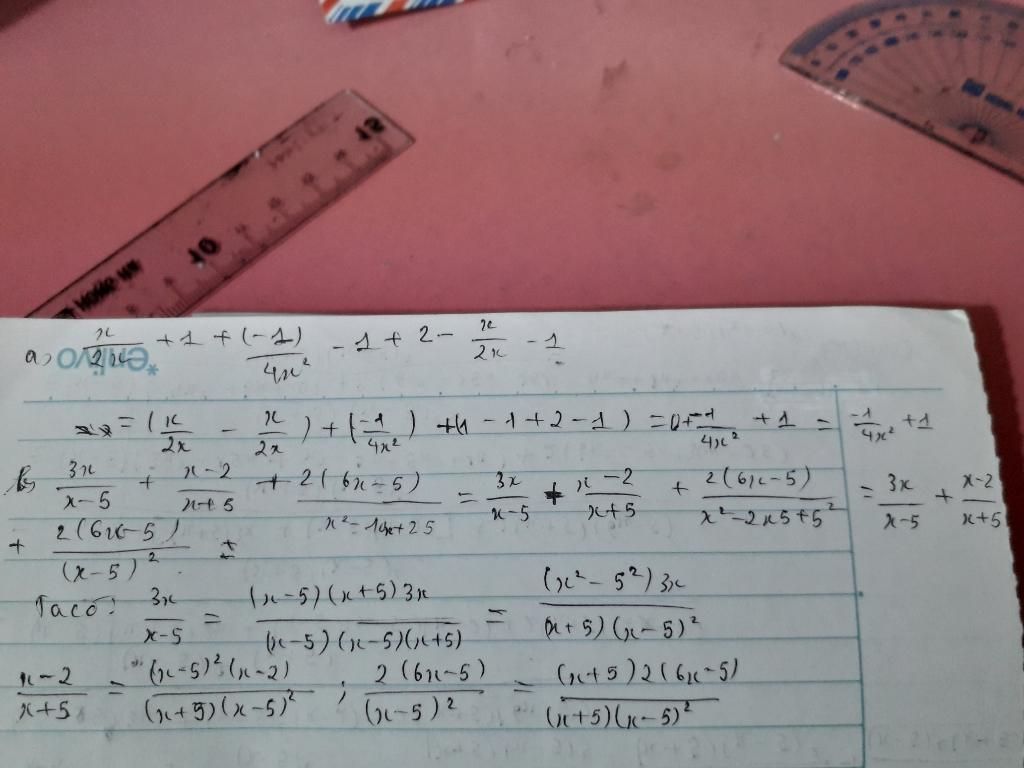 12
10
a) x/2x + 1 + (-1)/4x² - 1 + 2 - x/2x - 1
enlivo*
= (x/2x - x/2x) + (-1/4x²) + (1 - 1 + 2 - 1) = 0 + -1/4x² + 1 = -1/4x² + 1
b) 3x/x-5 + x-2/x+5 + 2(6x-5)/x²-10x+25 = 3x/x-5 + x-2/x+5 + 2(6x-5)/x²-2x5+5² = 3x/x-5 + x-2/x+5
+ 2(6x-5)/(x-5)²
Ta có: 3x/x-5 = (x-5)(x+5)3x/(x-5)(x-5)(x+5) = (x²-5²)3x/(x+5)(x-5)²
x-2/x+5 = (x-5)²(x-2)/(x+5)(x-5)² ; 2(6x-5)/(x-5)² = (x+5)2(6x-5)/(x+5)(x-5)²